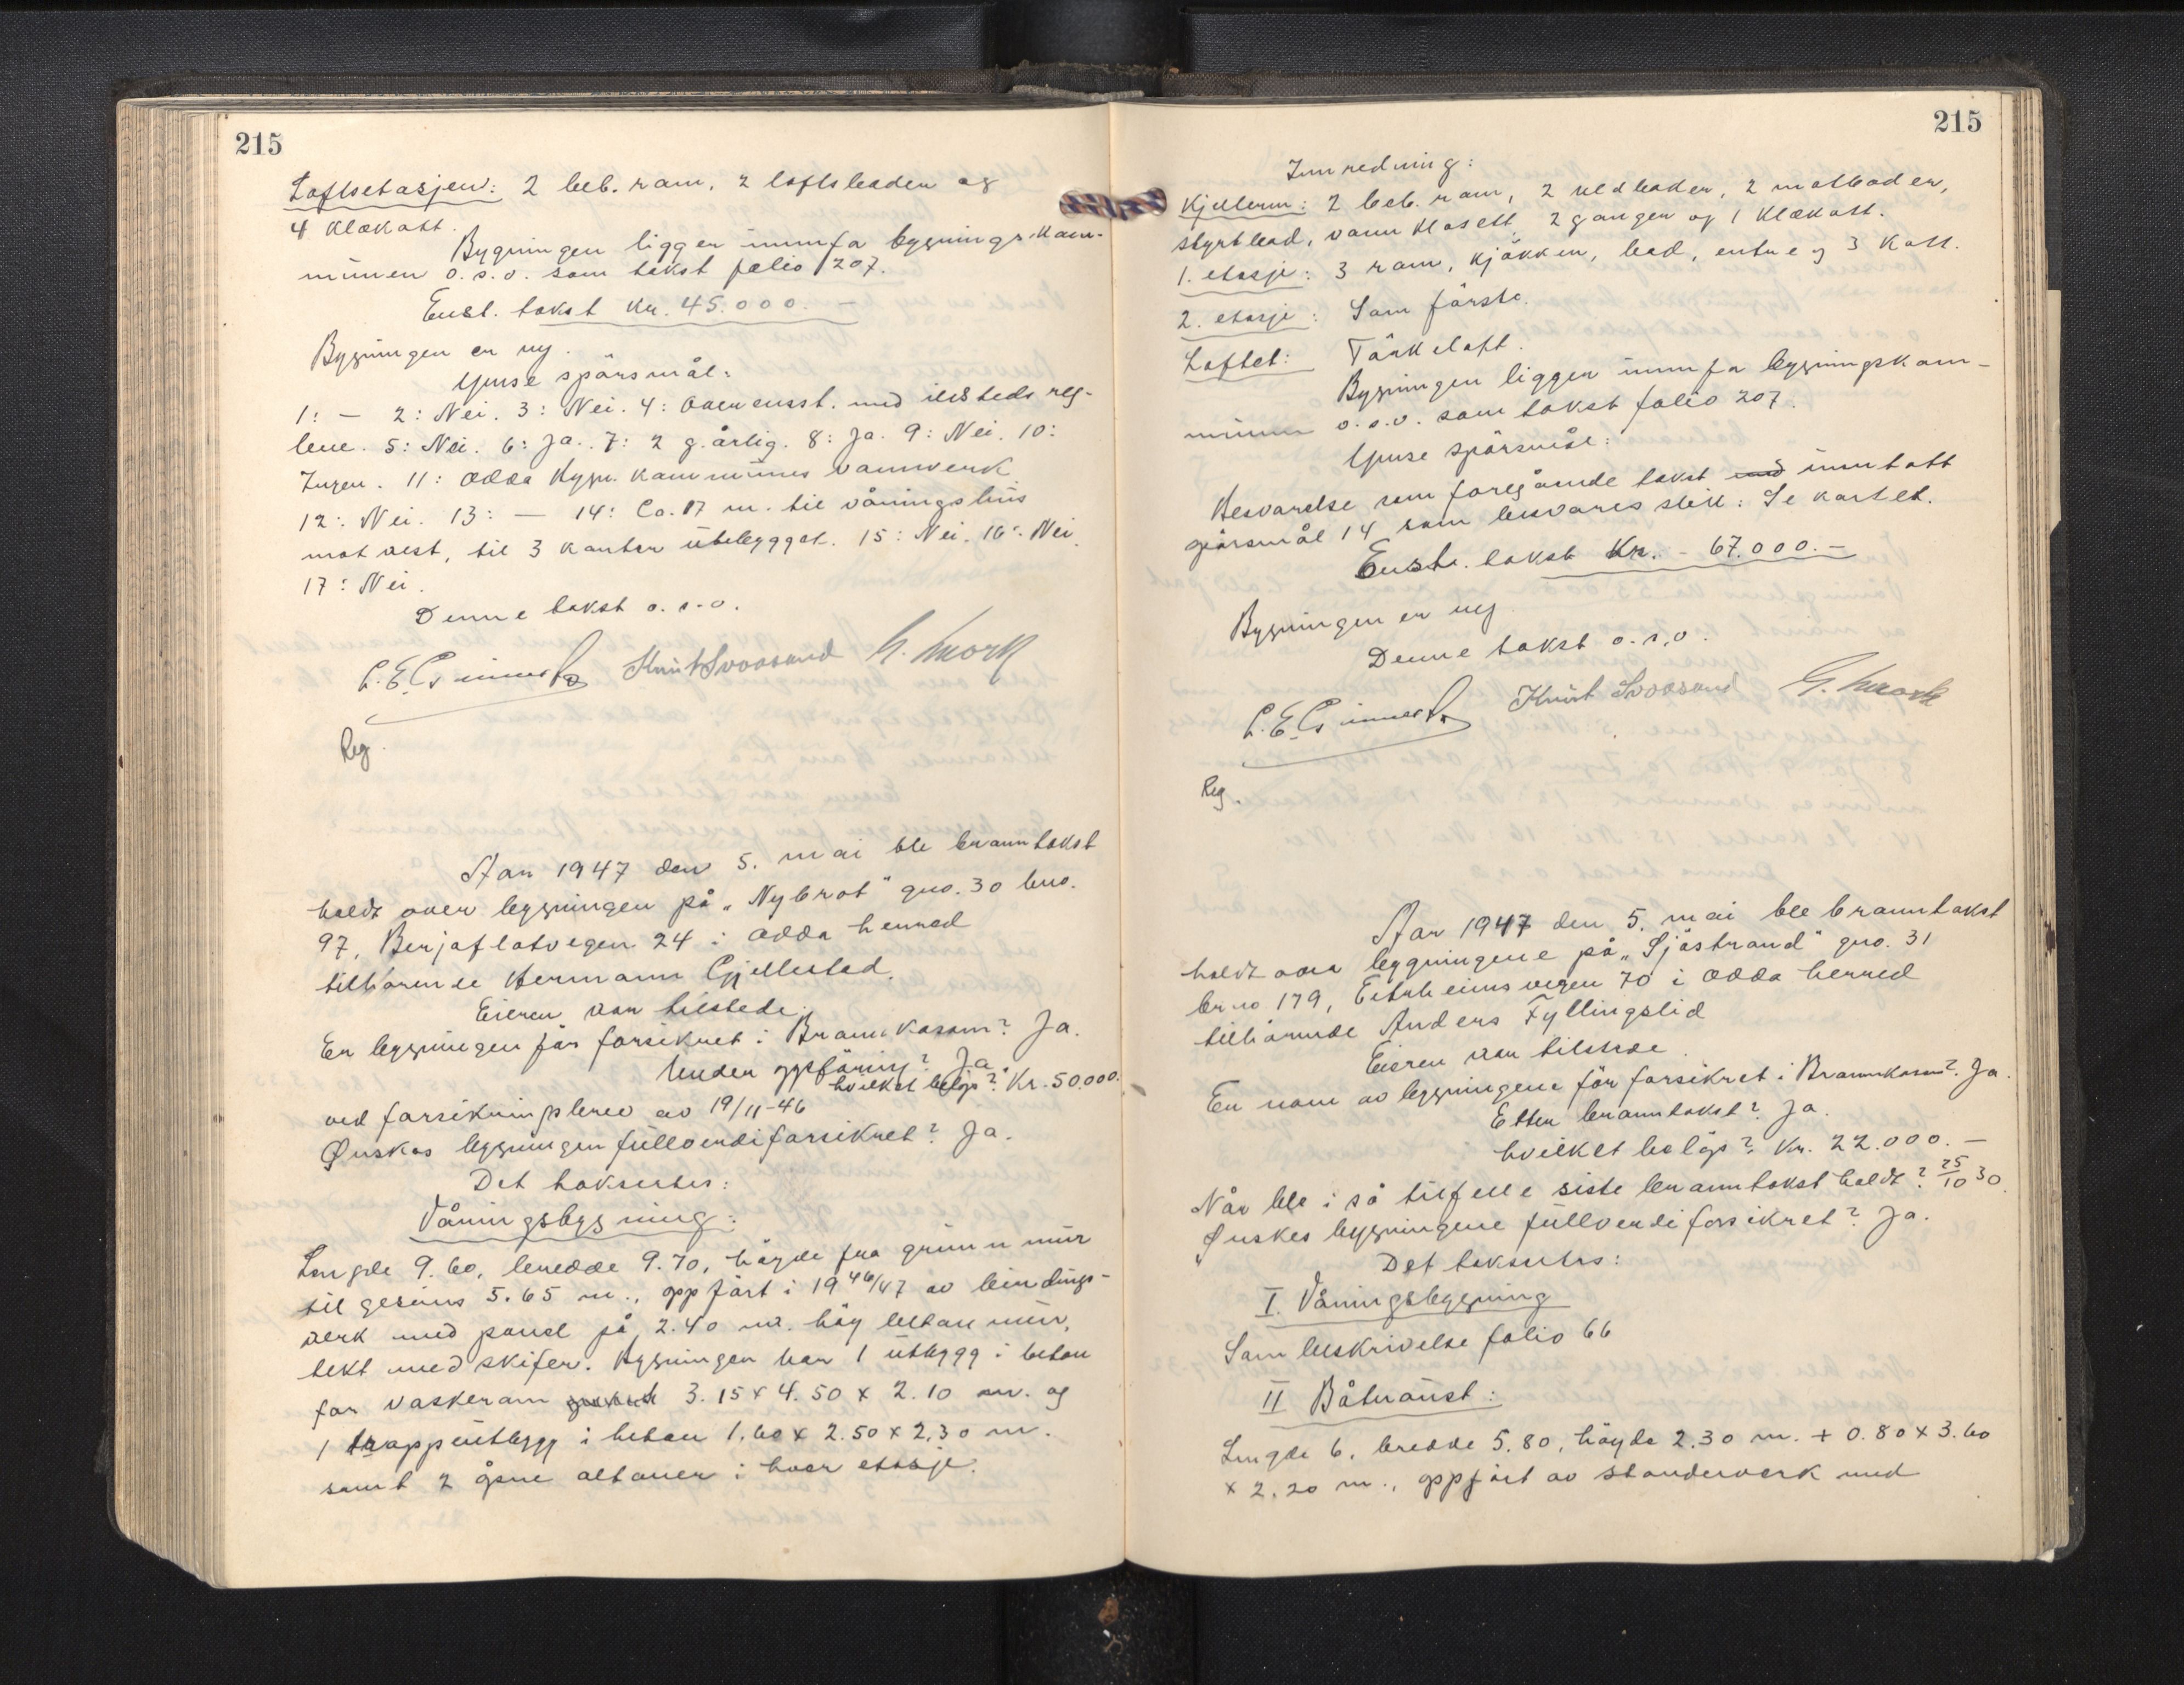 215
Loftsetasjen: 2 beb. rom, 2 loftsboder og
4 klækott.
Bygningen ligger innafor bygningskom-
munen o.s.v. som takst folio 207.
Enst. takst kr. 45.000.-
Bygningen er ny.
Ymse spörsmål:
1: - 2: Nei. 3: Nei. 4: Overensst. med ildsteds reg-
lene. 5: Nei. 6: Ja. 7: 2 g. årlig. 8: Ja. 9: Nei. 10:
Ingen. 11: Odda bygn. kommunes vannverk
12: Nei. 13: - 14: Ca. 17 m. til våningshus
mot vest, til 3 kanter utebygget. 15: Nei. 16: Nei.
17: Nei.
Denne takst o.s.v.
Knut Svoosand G. Mork
Reg.
Aar 1947 den 5. mai ble branntakst
holdt over bygningen på "Nybrot" gno. 30 bno.
97, Berjaflotvegen 24 i Odda herred
tilhörende Hermann Gjellestad.
Eieren var tilstede.
Er bygningen för forsikret i Brannkassen? Ja.
Under oppföring? Ja.
hvilket belöp? Kr. 50.000.
ved forsikringsbrev av 19/11-46
Ønskes bygningen fullverdiforsikret? Ja.
Det takseres:
Våningsbygning:
Lengde 9.60, bredde 9.70, höyde fra grunnmur
til gesims 5.65 m., oppfört i 1946/47 av bindings-
verk med panel på 2.40 m. höy betonmur,
tekt med skifer. Bygningen har 1 utbygg i beton
for vaskerom 3.15 x 4.50 x 2.10 m. og
1 trapputbygg i beton 1.60 x 2.50 x 2.30 m.
samt 2 åpne altaner i hver etasje.
215
Innredning:
Kjelleren: 2 beb. rom, 2 vedboder, 2 matboder,
styrtbad, vannklosett, 2 ganger og 1 klækott.
1. etasje: 3 rom, kjökken, bad, entre og 3 kott.
2. etasje: Som förste.
Loftet: Törkeloft.
Bygningen ligger innafor bygningskom-
munen o.s.v. som takst folio 207.
Ymse spörsmål:
Besvarelse som foregående takst med inntatt
spörsmål 14 som besvares slik: Se kartet.
Enst. takst Kr. - 67.000.-
Bygningen er ny
Denne takst o.s.v.
Knut Svoosand G. Mork
Reg.
Aar 1947 den 5. mai ble branntakst
holdt over bygningene på "Sjöstrand" gno. 31
brno 179, Eitrheimsvegen 70 i Odda herred
tilhörende Anders Fyllingslid
Eieren var tilstede.
Er noen av bygningene för forsikret i Brannkassen? Ja.
Etter branntakst? Ja.
hvilket belöp? Kr. 22.000.-
Når ble i så tilfelle siste branntakst holdt? 25/10 30.
Ønskes bygningene fullverdiforsikret? Ja.
Det takseres:
I. Våningsbygning
Som beskrivelse folio 66
II Båtnaust:
Lengde 6, bredde 5.80, höyde 2.30 m. + 0.80 x 3.60
x 2.20 m., oppfört av standerverk med